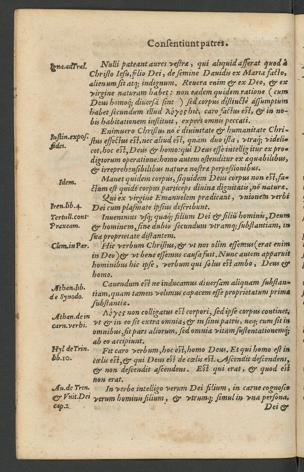 Consentiunt patres.
Igne.ad Tral. Nulli pateant aures vestra, qui aliquid asserat quod à
Christo Iesu, filio Dei, de semine Dauidis ex Maria facto,
alienum sit atq; indignum. Reuera enim & ex Deo, & ex
virgine naturam habet: non eadem quidem ratione (cum
Deus homoq; diuersa sint) sed corpus distinctè assumptum
habet secundum illud λόγος hic, caro factus est, & in no-
bis habitationem instituit, expers omnis peccati.
Iustin. expos. Enimuero Christus nō è diuinitate & humanitate Chri-
fidei. stus effectus est, nec aliud est, quàm duo ista, vtraq; videli-
cet, hoc est, Deus & homo: qui Deus esse intelligitur ex pro-
digiorum operatione: homo autem ostenditur ex æqualibus,
& irreprehensibilibus natura nostræ perpessionibus.
Idem. Manet quidem corpus, siquidem Deus corpus non est, fa-
ctum est quidē corpus particeps diuina dignitatis, nō naturæ.
Iren. lib. 4. Qui ex virgine Emanuelem prædicant, vnionem verbi
Dei cum plasmate ipsius ostendunt.
Tertull. cont Inuenimus vsq; quaq; filium Dei & filiũ hominis, Deum
Praxeam. & hominem, sine dubio secundum vtramq; substantiam, in
sua proprietate distantem.
Clem. in Par. Hic verbum Christus, & vt nos olim essemus (erat enim
in Deo) & vt bene essemus causa fuit. Nunc autem apparuit
hominibus hic ipse, verbum qui solus est ambo, Deus &
homo.
Athan. lib. Cauendum est ne inducamus diuersam aliquam substan-
de Synodo. tiam, quam tamen volumus capacem esse proprietatum prima
substantia.
Athan. de in λόγος non colligatus est corpori, sed ipse corpus continet,
carn. verbi. vt & in eo sit extra omnia, & in sinu patris, neq; cum sit in
omnibus, sit par aliorum, sed omnia vitam sustentationemq;
ab eo accipiunt.
Hyl. de Trin. Fit caro verbum, hoc est, homo Deus. Et qui homo est in
lib. 10. cœlis est, & qui Deus est de cœlis est. Ascendit descendens,
& non descendit ascendens. Est qui erat, & quod est
non erat.
Au. de Trin. In verbo intelligo verum Dei filium, in carne cognosco
& Vnit. Dei verum hominis filium, & vtrumq; simul in vna persona,
cap. 2. Dei &